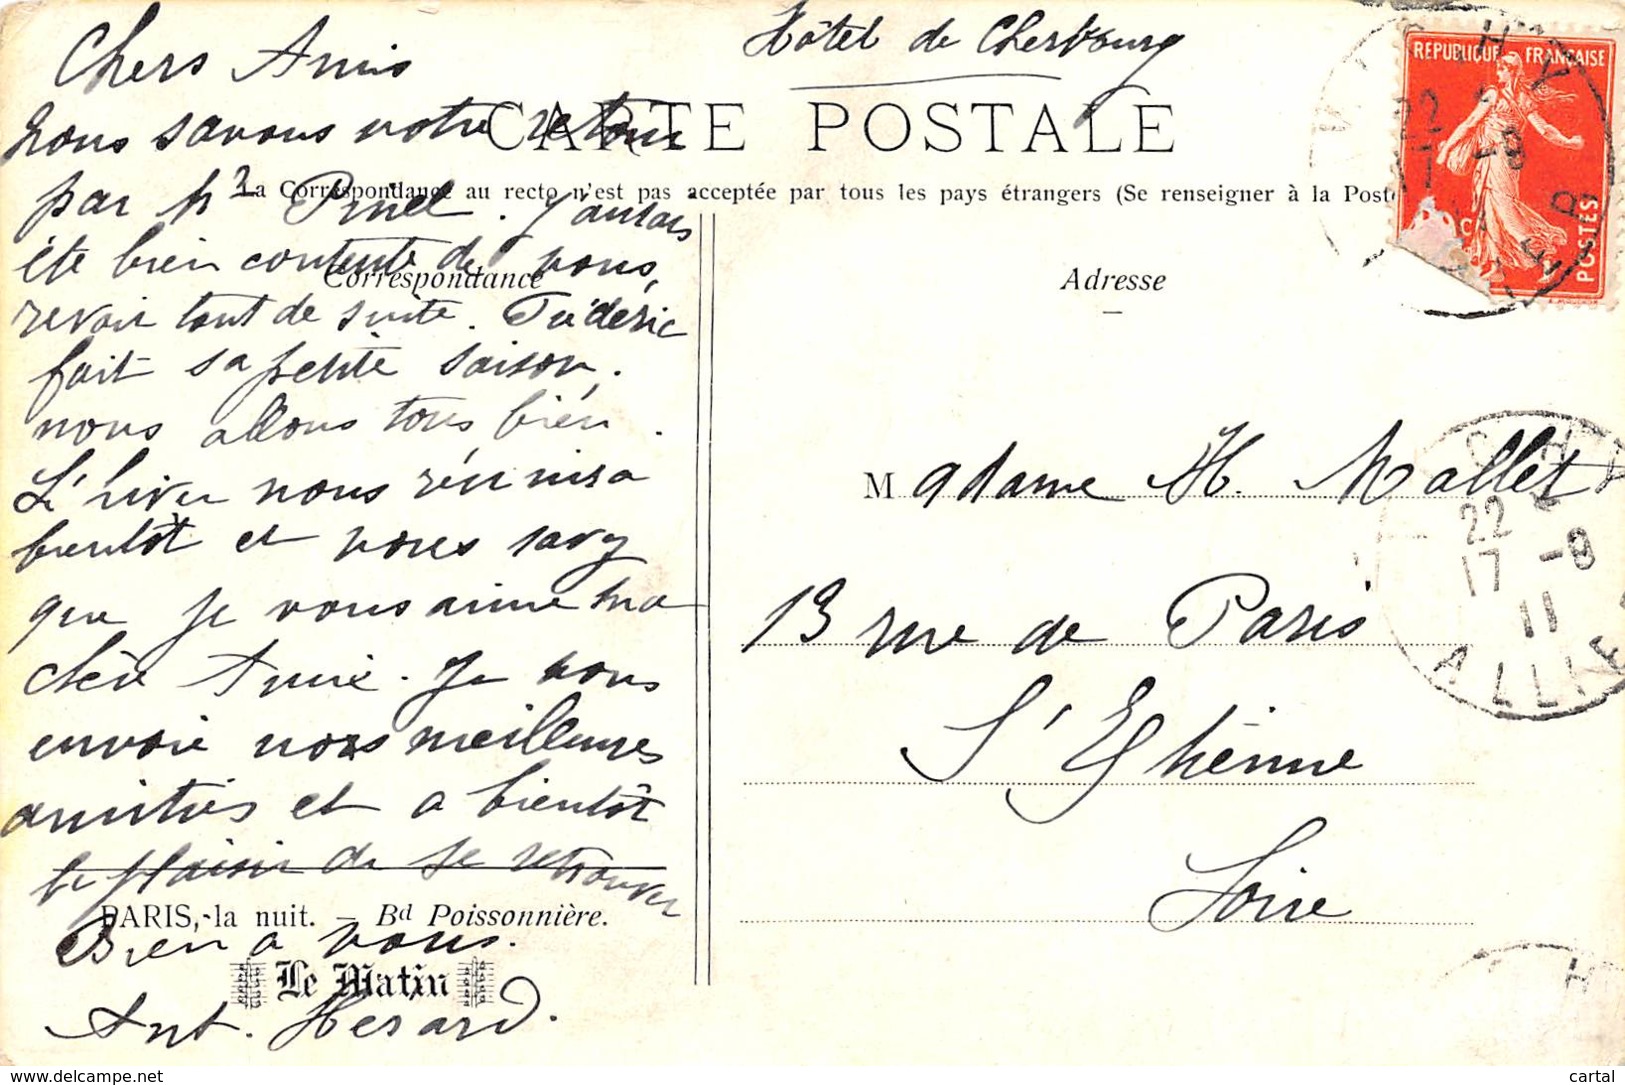 Hôtel de Cherbourg
Chers Amis
nous savons votre retour
par Mr Pinel. J'aurais
été bien contente de vous
revoir tout de suite. Frédéric
fait sa petite saison.
nous allons tous bien.
L'hiver nous réunira
bientôt et vous savez
que je vous aime ma
chère Amie. Je vous
envoie nos meilleures
amitiés et a bientôt
le plaisir de se retrouver
Bien a vous.
Ant. Herard.
CARTE POSTALE
La Correspondance au recto n'est pas acceptée par tous les pays étrangers (Se renseigner à la Poste
Correspondance
Adresse
Madame H. Mallet
13 rue de Paris
St Etienne
Loire
PARIS, la nuit. - Bd Poissonnière.
Le Matin
REPUBLIQUE FRANÇAISE
POSTES
22
17 -9
11
ALLIE
delcampe.net
cartal